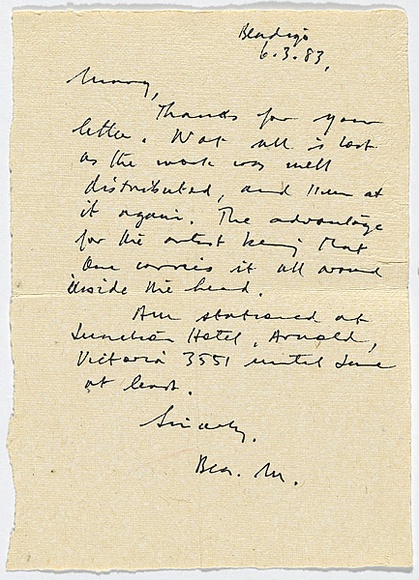 Bendigo
6.3.83,
Thanks for your
letter. Not all is lost
as the work was well
distributed, and I'm at
it again. The advantage
for the artist being that
one carries it all around
inside the head.
Am stationed at
Junction Hotel, Arnold,
Victoria 3551 until June
at least.
Sincerely.